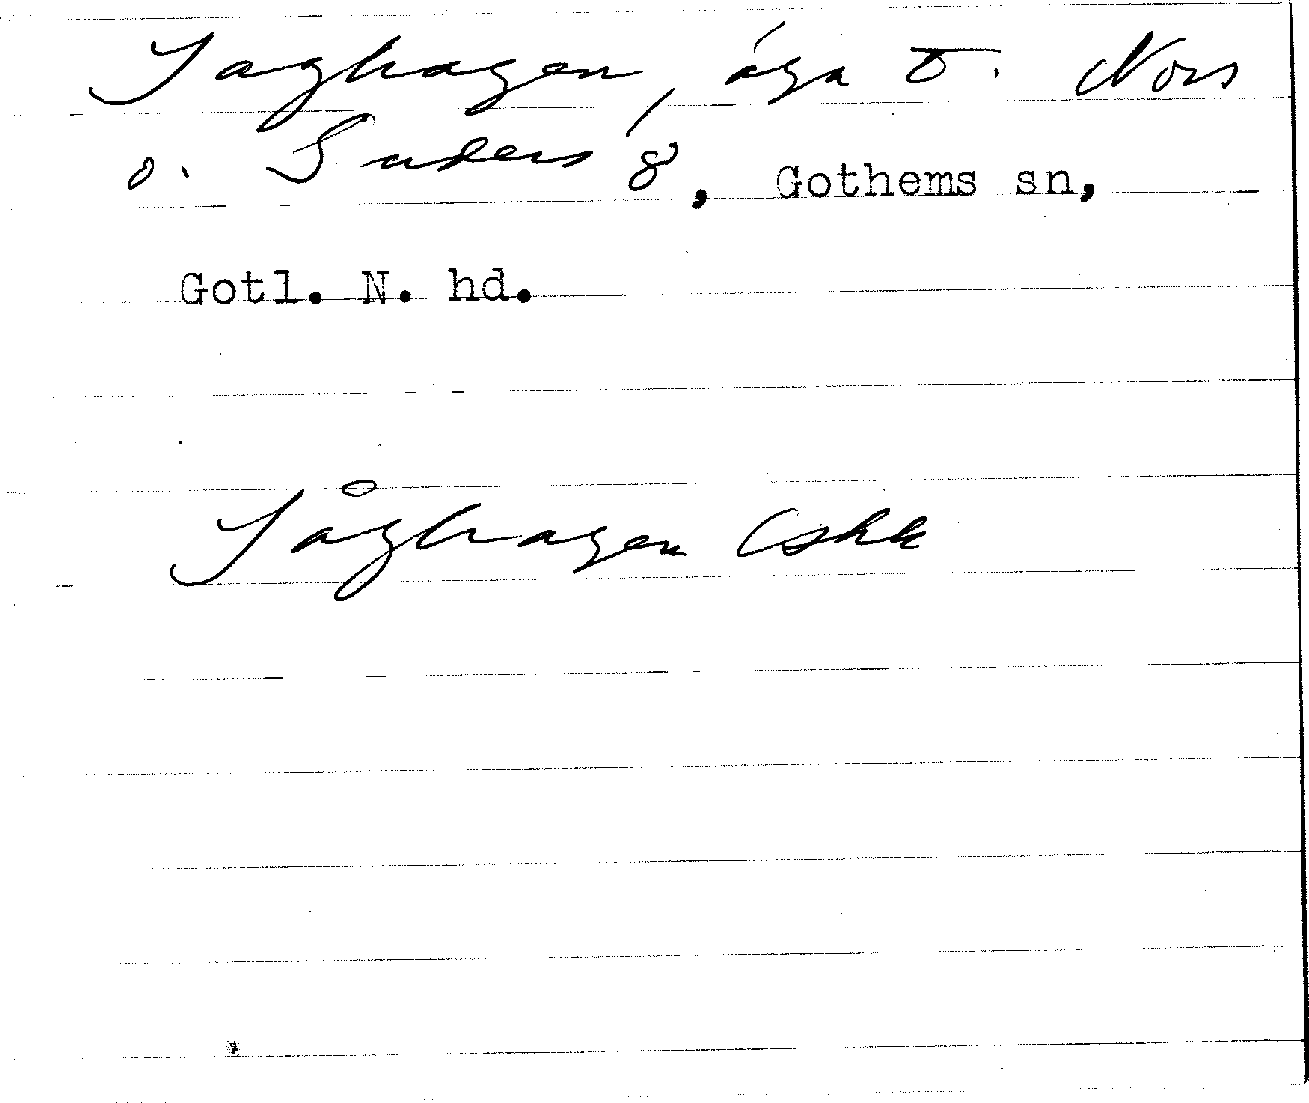 Saghagen, äga t. Nors
o. Suders 8, Gothems sn,
Gotl. N. hd.
Såghagen Cskk